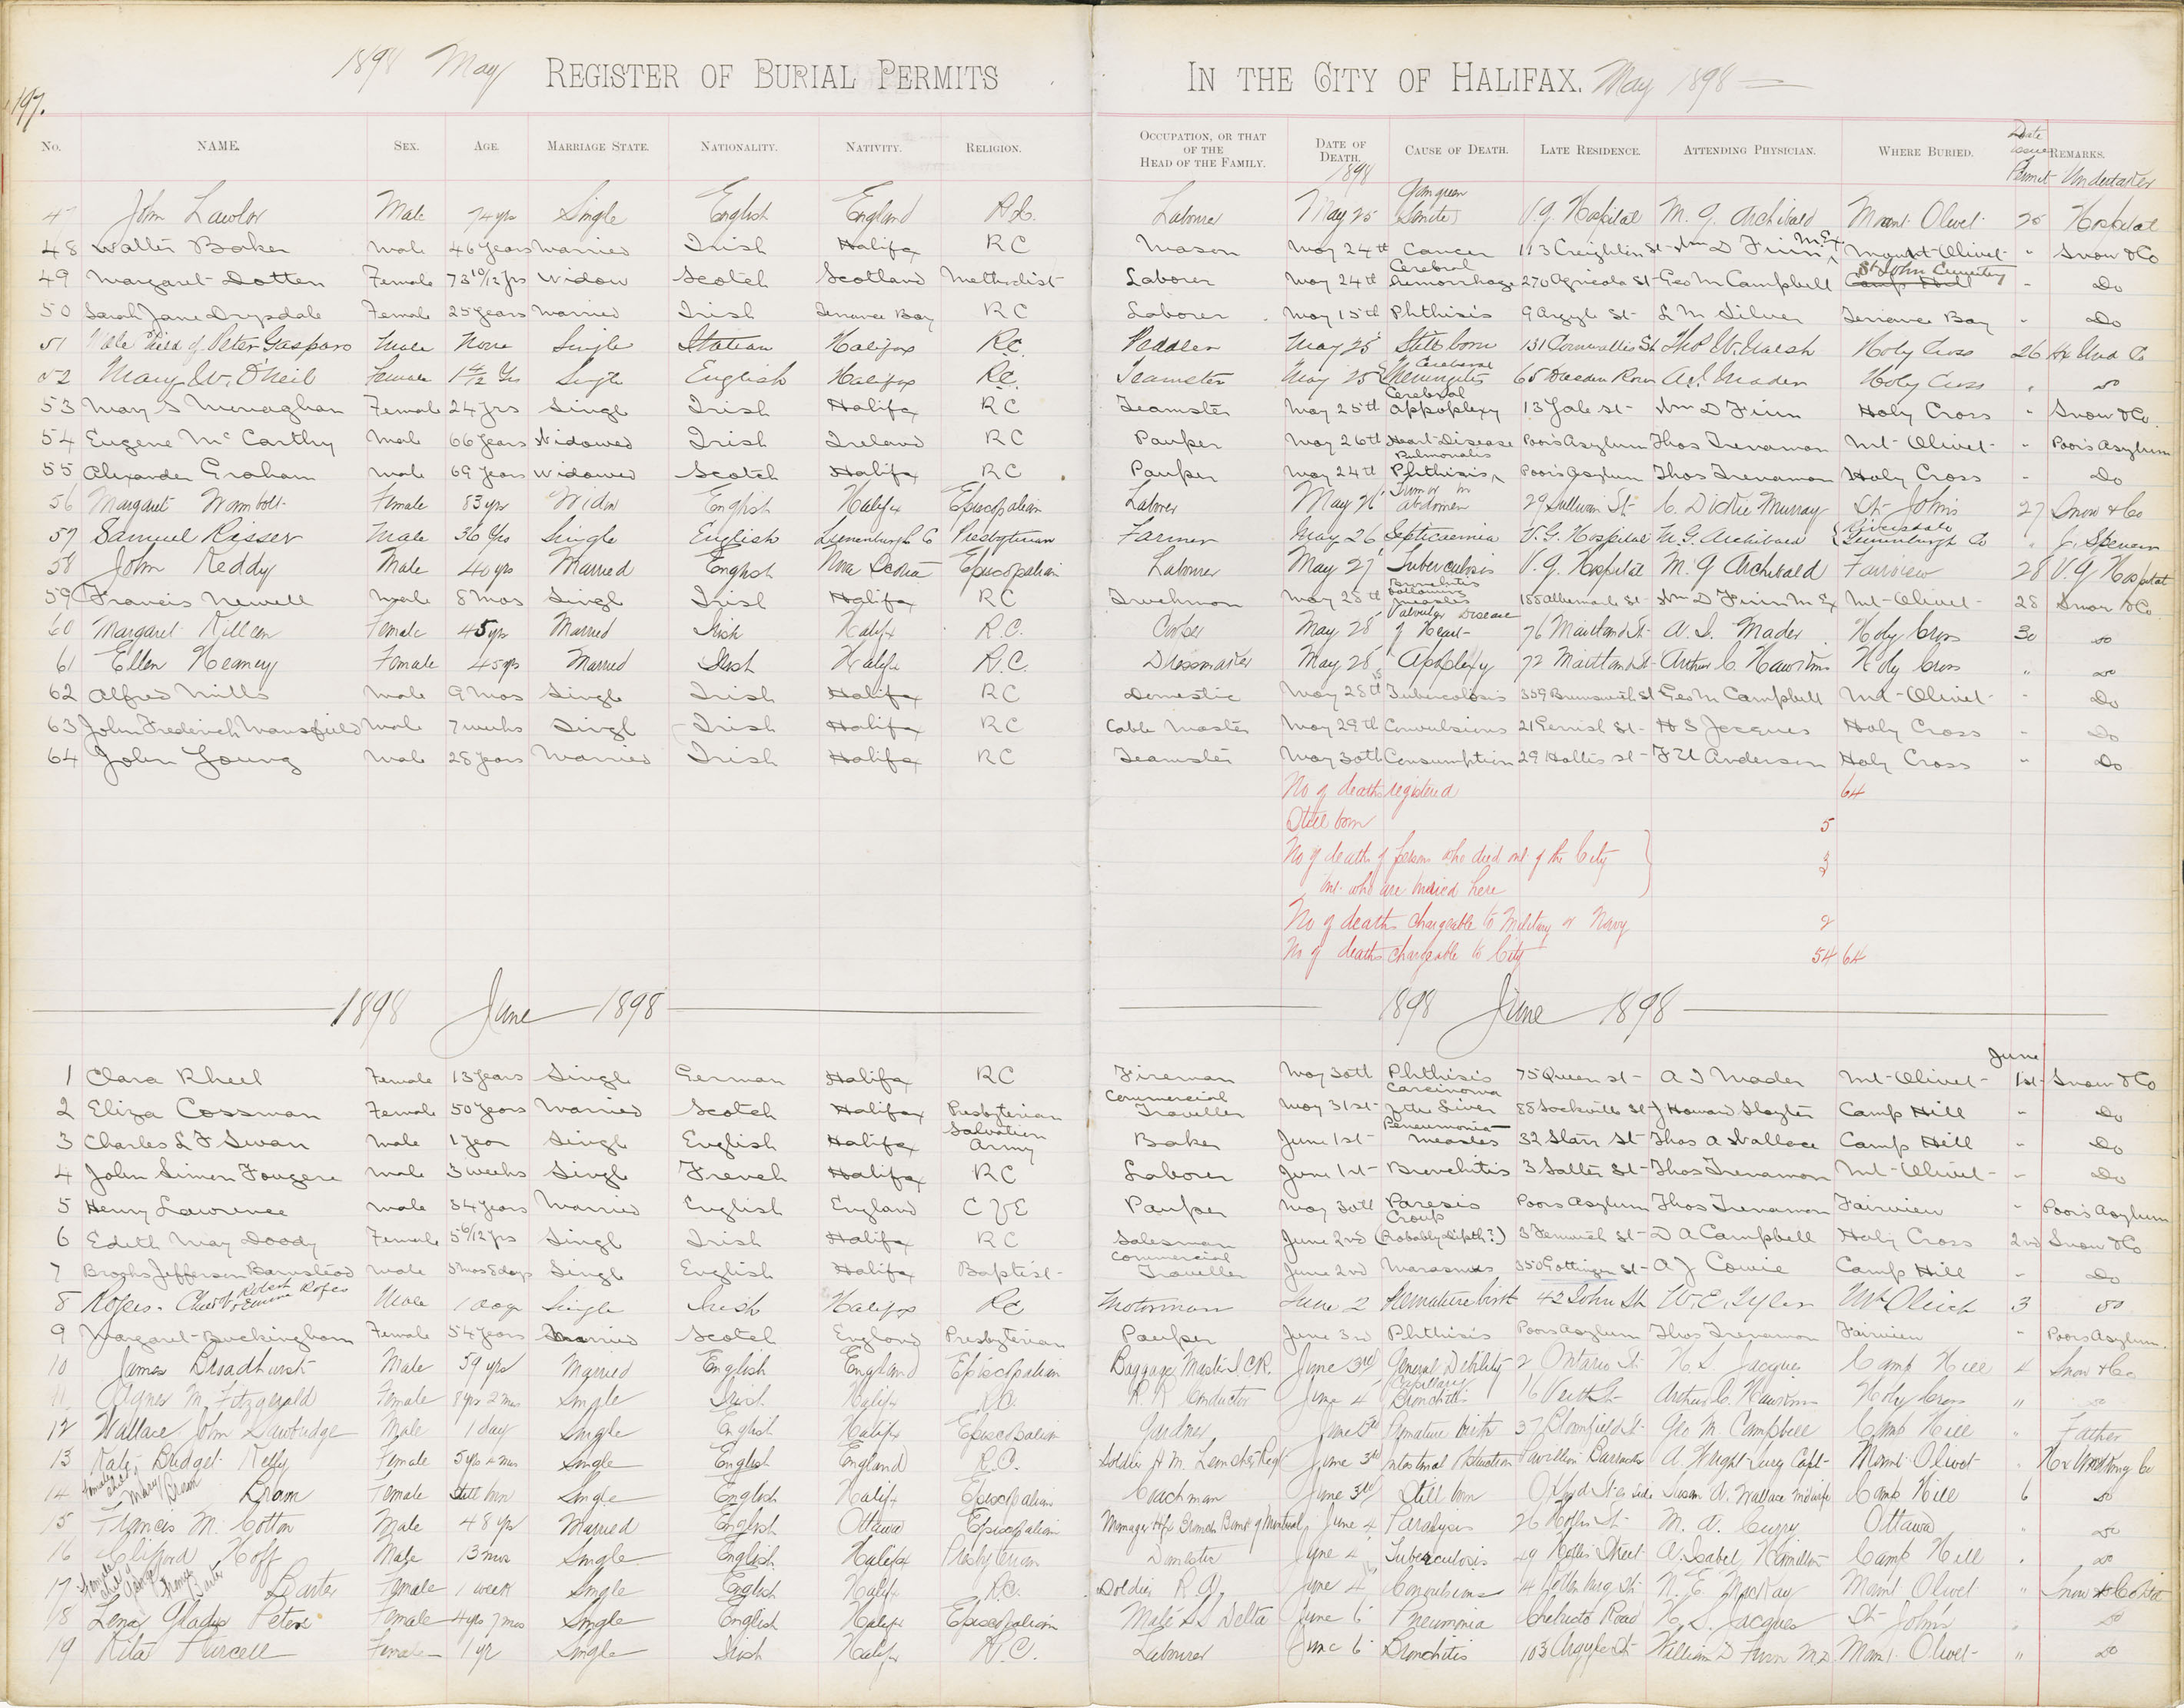 197.
1898 May REGISTER OF BURIAL PERMITS IN THE CITY OF HALIFAX. May 1898
No. NAME. SEX. AGE. MARRIAGE STATE. NATIONALITY. NATIVITY. RELIGION. OCCUPATION, OR THAT OF THE HEAD OF THE FAMILY. DATE OF DEATH. 1898 CAUSE OF DEATH. LATE RESIDENCE. ATTENDING PHYSICIAN. WHERE BURIED. Date issued Permit REMARKS. Undertaker
47 John Lawlor Male 74 yrs Single English England R.C. Laborer May 25 Gangreen Senile V.G. Hospital M. G. Archibald Mount Olivet 25 Hospital
48 Walter Baker Male 46 years Married Irish Halifax RC Mason May 24th Cancer 113 Creighton St Wm D Finn M.Ex Mount Olivet " Snow & Co
49 Margaret Dotten Female 73 10/12 yrs Widow Scotch Scotland Methodist Laborer May 24th Cerebral hemorrhage 270 Agricola St Geo M Campbell Camp Hill St John Cemetery " Do
50 Sarah Jane Drysdale Female 25 years Married Irish Terrance Bay RC Laborer May 15th Phthisis 9 Argyle St L M Silver Terrance Bay " Do
51 Male Child of Peter Gasparo Male None Single Italian Halifax RC. Peddler May 25 Still born 131 Cornwallis St Thos W. Walsh Holy Cross 26 Hx Und Co
52 Mary W. O'Neil Female 1 4/12 Yrs Single English Halifax RC. Teamster May 25 Cerebral Meningitis 65 Dresden Row A.I. Mader Holy Cross " do
53 Mary S Monaghan Female 24 yrs Single Irish Halifax RC Teamster May 25th Cerebral appoplexy 13 Yale St Wm D Finn Holy Cross " Snow & Co.
54 Eugene McCarthy Male 66 years Widowed Irish Ireland RC Pauper May 26th Heart Disease Poor's Asylum Thos Trenaman Mt Olivet " Poor's Asylum
55 Alexander Graham Male 69 years Widowed Scotch Halifax RC Pauper May 24th Phthisis Pulmonalis Poor's Asylum Thos Trenaman Holy Cross " Do
56 Margaret Wambolt Female 83 yrs Widow English Halifax Episcopalian Laborer May 26 Tumor in abdomen 29 Sullivan St C. Dickie Murray St. John's 27 Snow & Co
57 Samuel Risser Male 36 Yrs Single English Lunenburgh Co Presbyterian Farmer May 26 Septicaemia V.G. Hospital M.G. Archibald Riversdale Lunenburgh Co " J. Spencer
58 John Reddy Male 40 yrs Married English Nova Scotia Episcopalian Laborer May 27 Tuberculosis V.G. Hospital M. G Archibald Fairview 28 V.G Hospital
59 Francis Newell Male 8 Mos Single Irish Halifax RC Truckman May 28th Bronchitis following measles 188 Albemarle St Wm D Finn M Ex Mt Olivet 28 Snow & Co
60 Margaret Killeen Female 45 yrs Married Irish Halifx R.C. Cooper May 28 Valvular Disease of Heart 76 Maitland St A. I. Mader Holy Cross 30 do
61 Ellen Heaney Female 45 yrs Married Irish Halifx R.C. Dressmaker May 28 Apoplexy 72 Maitland St Arthur C. Hawkins Holy Cross " do
62 Alfred Mills Male 9 Mos Single Irish Halifax RC Domestic May 28th Tuberculosis 359 Brunswick St Geo M Campbell Mt Olivet " Do
63 John Frederick Mansfield Male 7 weeks Single Irish Halifax RC Cable Master May 29th Convulsions 21 Gerrish St H S Jacques Holy Cross " Do
64 John Young Male 28 years Married Irish Halifax RC Teamster May 30th Consumption 29 Hollis St F U Anderson Holy Cross " Do
No of deaths registered 64
Still born 5
No of deaths of persons who died out of the City
but who are buried here 3
No of deaths chargeable to Military or Navy 2
No of deaths chargeable to City 54 64
1898 June 1898 1898 June 1898
June
1 Clara Kheel Female 13 years Single German Halifax RC Fireman May 30th Phthisis 75 Queen St A I Mader Mt Olivet 1st Snow & Co
2 Eliza Cossman Female 50 years Married Scotch Halifax Presbyterian Commercial Traveller May 31st Carcinoma of the Liver 88 Sackville St J Howard Slayter Camp Hill " Do
3 Charles L F Swan Male 1 year Single English Halifax Salvation Army Baker June 1st Pneumonia measles 32 Starr St Thos A Wallace Camp Hill " Do
4 John Simon Fougere Male 3 weeks Single French Halifax RC Laborer June 1st Bronchitis 3 Salter St Thos Trenaman Mt Olivet " Do
5 Henry Lawrence Male 34 years Married English England C of E Pauper May 30th Paresis Poors Asylum Thos Trenaman Fairview " Poor's Asylum
6 Edith May Doody Female 5 6/12 yrs Single Irish Halifax RC Salesman June 2nd Croup (Probably dipth?) 3 Fenwick St D A Campbell Holy Cross 2nd Snow & Co
7 Brooks Jefferson Barnstead Male 5 mos 8 days Single English Halifax Baptist Commercial Traveller June 2nd Marasmus 350 Gottingen St A J Cowie Camp Hill " Do
8 Ropes. Child of Robert & Emma Ropes Male 1 day Single Irish Halifax RC Motorman June 2 Premature birth 42 John St W. E. Tyler Mt Olivet 3 do
9 Margaret Buckingham Female 54 years Married Scotch England Presbyterian Pauper June 3rd Phthisis Poors Asylum Thos Trenaman Fairview " Poors Asylum.
10 James Broadhurst Male 59 yrs Married English England Episcopalian Baggage Master I.C.R. June 3rd General Debility 2 Ontario St H. S. Jacques Camp Hill 4 Snow & Co
11 Agnes M. Fitzgerald Female 8 yrs 2 mos Single Irish Halifx R.C. R. R. Conductor June 4 Capillary Bronchitis 16 Veith St Arthur C. Hawkins Holy Cross " do
12 Wallace John Sawbridge Male 1 day Single English Halifx Episcopalian Gardner June 3rd Premature birth 37 Bloomfield St Geo M Campbell Camp Hill " Father
13 Kate Bridget Kelly Female 5 yrs 4 mos Single English England R.C. Soldier H. M. Leinster Regt June 3rd Intestinal Obstruction Pavillion Barracks A. Wright Surg Capt Mount Olivet " Hx Undtking Co
14 Female child of Mary Bram Bram Female Still born Single English Halifx Episcopalian Coachman June 3rd Still born Oxford St E Side Susan A. Wallace Midwife Camp Hill 6 do
15 Francis M. Cotton Male 48 yrs Married English Ottawa Episcopalian Manager Hfx Branch Bank of Montreal June 4 Paralysis 26 Hollis St M. A. Curry Ottawa " do
16 Clifford Hoff Male 13 mos Single English Halifx Presbyterian Domestic June 4 Tuberculosis 49 Hollis Street A. Isabel Hamilton Camp Hill " do
17 Female child of George Barter Female 1 week Single English Halifx R.C. Soldier R.A. June 4 Convulsions N. E. MacKay Mount Olivet " Snow & Co
18 Lena Gladys Peters Female 4 yrs 7 mos Single English Halifx Episcopalian Mate S.S Delta June 6 Pneumonia Chebucto Road H. S. Jacques St. John's " do
19 Rita Purcell Female 1 yr Single Irish Halifx R.C. Laborer June 6 Bronchitis 103 Argyle St William D Finn M.D. Mount Olivet " do